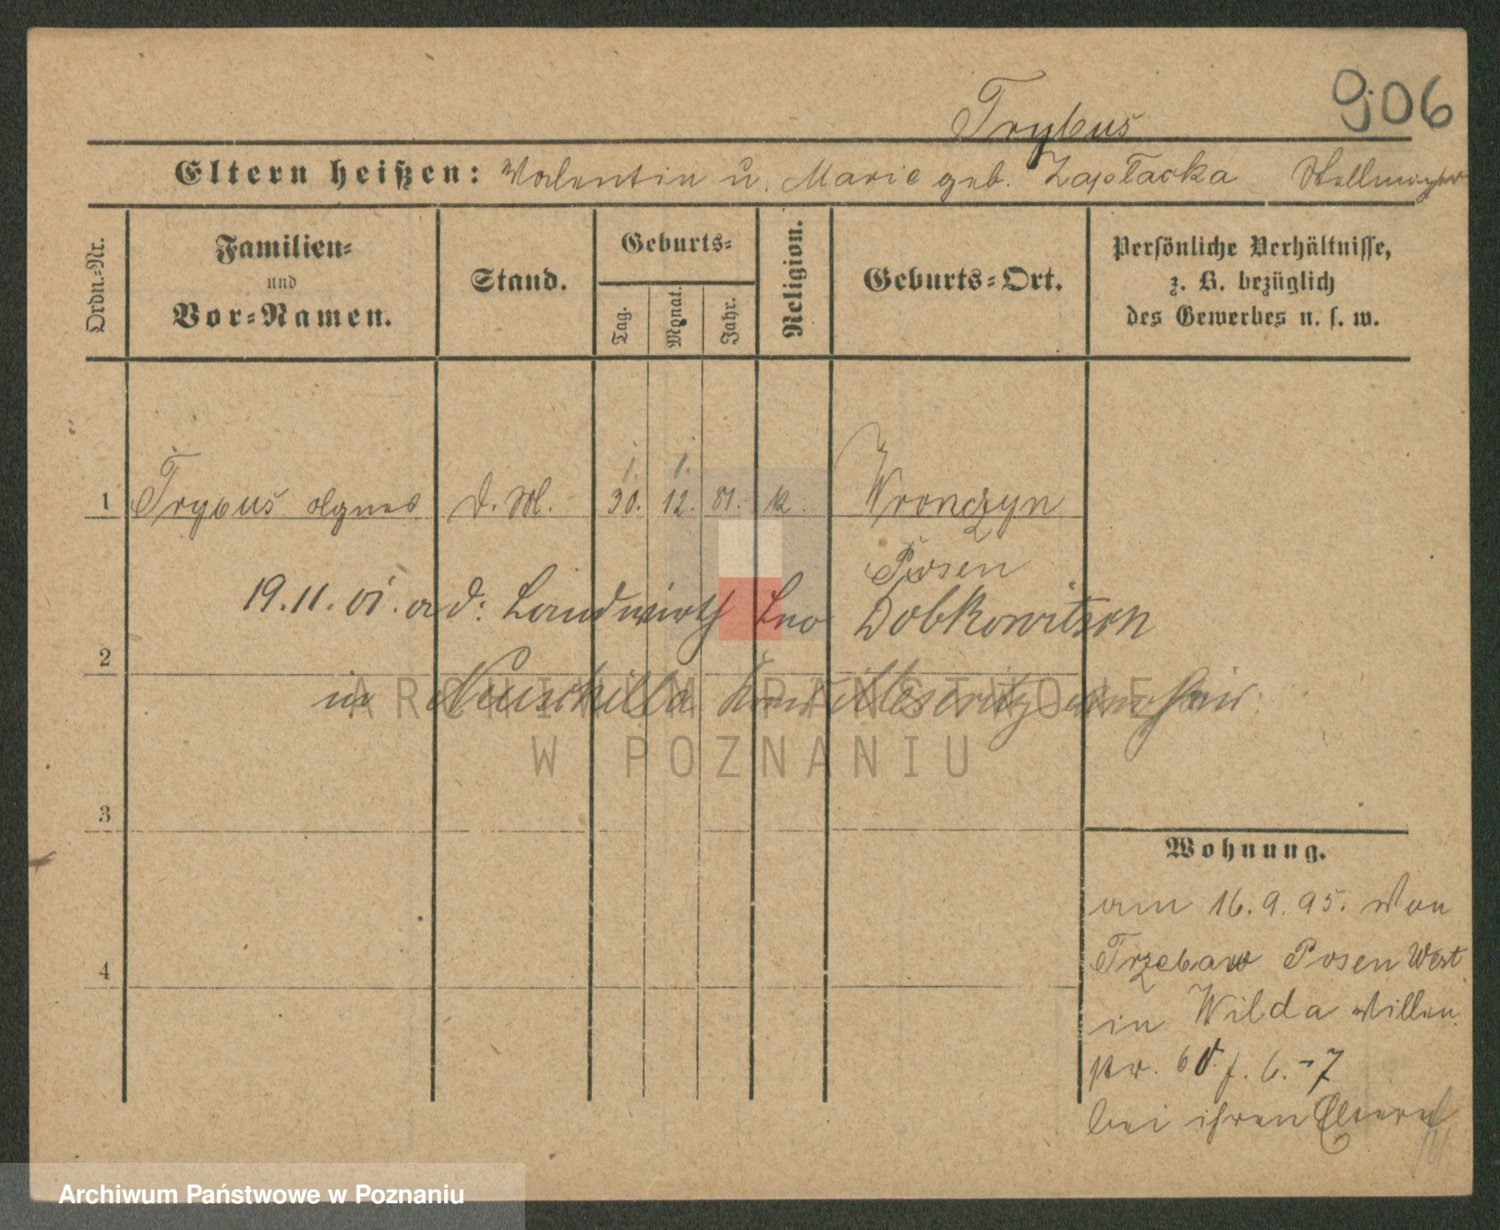 906
Trybus
Eltern heißen: Valentin u. Marie geb. Zaptacka Stellmacher
Ordn.-Nr.
Familien-
und
Vor-Namen.
Stand.
Geburts-
Tag.
Monat.
Jahr.
Religion.
Geburts-Ort.
Persönliche Verhältnisse,
z. B. bezüglich
des Gewerbes u. s. w.
1. 1.
1 Trybus Agnes d. M. 30. 12. 81. k. Wronczyn
Posen
19.11.01. a d: Landwirth Leo Dobkowitson
2
in
ARCHIWUM PAŃSTWOWE
W POZNANIU
3
Wohnung.
am 16.9.95. von
Trzebaw Posen West
in Wilda
4
bei ihren Eltern
Archiwum Państwowe w Poznaniu